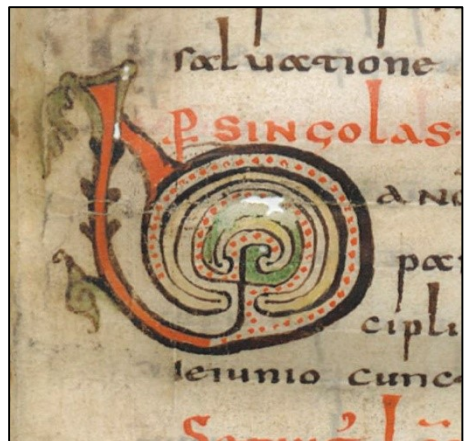 saluatione
ꝑ SINGOLAS
DA NO
pa
cipli
ieiunio cunc